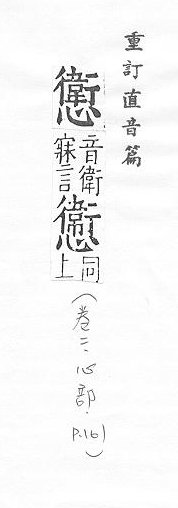 重訂直音篇
㦣音衛寐言同上
(卷二·心部·P.161)